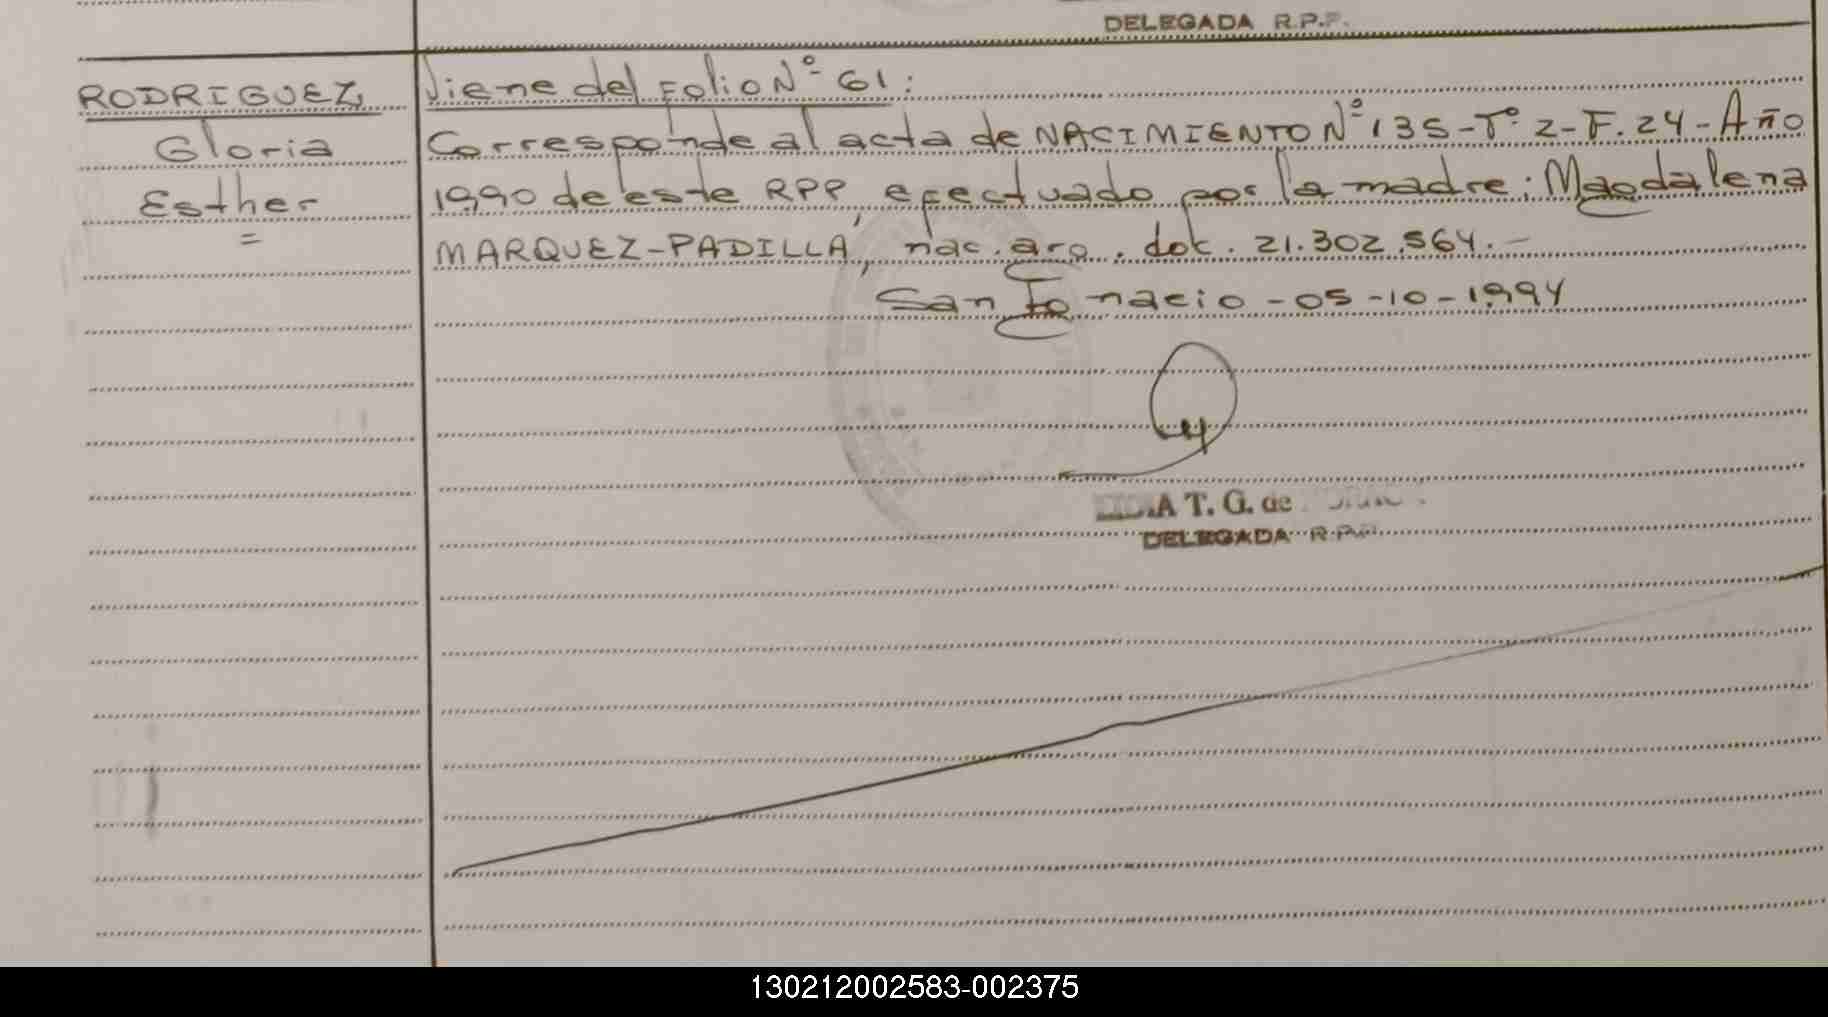 DELEGADA R.P.P.
RODRIGUEZ,
Gloria
Esther
=
Viene del Folio Nº 61:
Corresponde al acta de NACIMIENTO Nº 135-Tº 2-F.24-Año
1990 de este RPP, efectuado por la madre: Magdalena
MARQUEZ-PADILLA, nac. arg. doc. 21.302.564.-
San Ignacio-05-10-1994
A T. G. de
DELEGADA R.P.P.
130212002583-002375